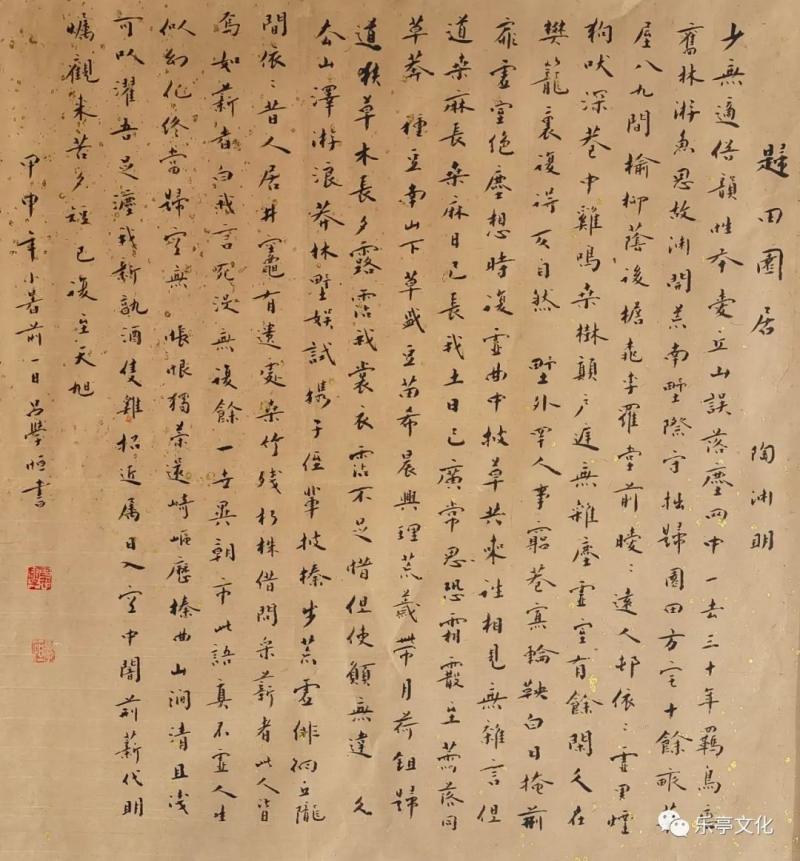 歸田園居 陶渊明
少無適俗韻性本愛丘山誤落塵网中一去三十年羈鳥戀
舊林游魚思故渊開荒南野際守拙歸園田方宅十餘畝草
屋八九間榆柳蔭後檐桃李羅堂前曖〻遠人邨依〻虛里煙
狗吠深巷中雞鳴桑樹顛户庭無雜塵虛室有餘閑久在
樊籠裏復得反自然 野外罕人事窮巷寡輪鞅白日掩荆
扉虛室絕塵想時復虛曲中披草共來往相見無雜言但
道桑麻長桑麻日已長我土日已廣常思恐霜霰至零落同
草莽 種豆南山下草盛豆苗希晨興理荒薉帶月荷鉏歸
道狹草木長夕露霑我裳衣霑不足惜但使願無違 久
去山澤游浪莽林野娱試携子侄輩披榛步荒虛徘徊丘隴
間依〻昔人居井竈有遺處桑竹殘朽株借問采薪者此人皆
焉如薪者向我言死没無復餘一世異朝市此語真不虛人生
似幻化終當歸空無 悵恨獨策還崎嶇歷榛曲山澗清且淺
可以濯吾足漉我新熟酒隻雞招近属日入室中闇荆薪代明
燭觀來苦夕短已復至天旭
甲申年小暑前一日吕學恒書
乐亭文化